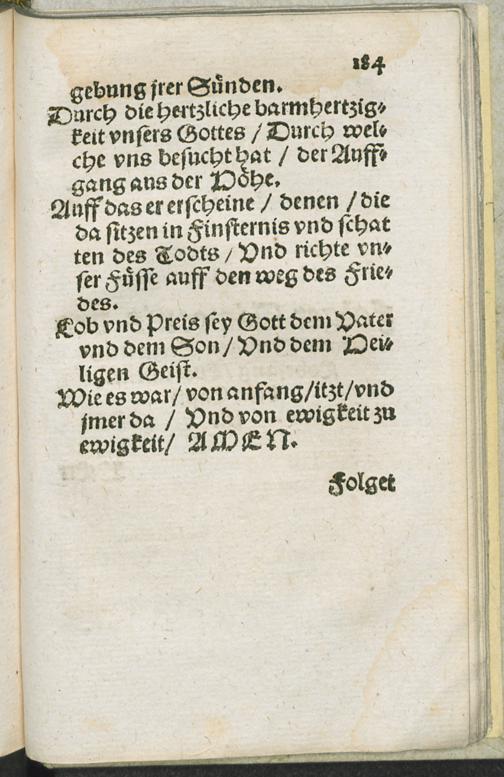 184
gebung jrer Sünden.
Durch die hertzliche barmhertzig⸗
keit vnsers Gottes / Durch wel⸗
che vns besucht hat / der Auff⸗
gang aus der Höhe.
Auff das er erscheine / denen / die
da sitzen in Finsternis vnd schat
ten des Todts / Vnd richte vn⸗
ser Füsse auff den weg des Frie⸗
des.
Lob vnd Preis sey Gott dem Vater
vnd dem Son / Vnd dem Hei⸗
ligen Geist.
Wie es war / von anfang / itzt / vnd
jmer da / Vnd von ewigkeit zu
ewigkeit / AMEN.
Folget